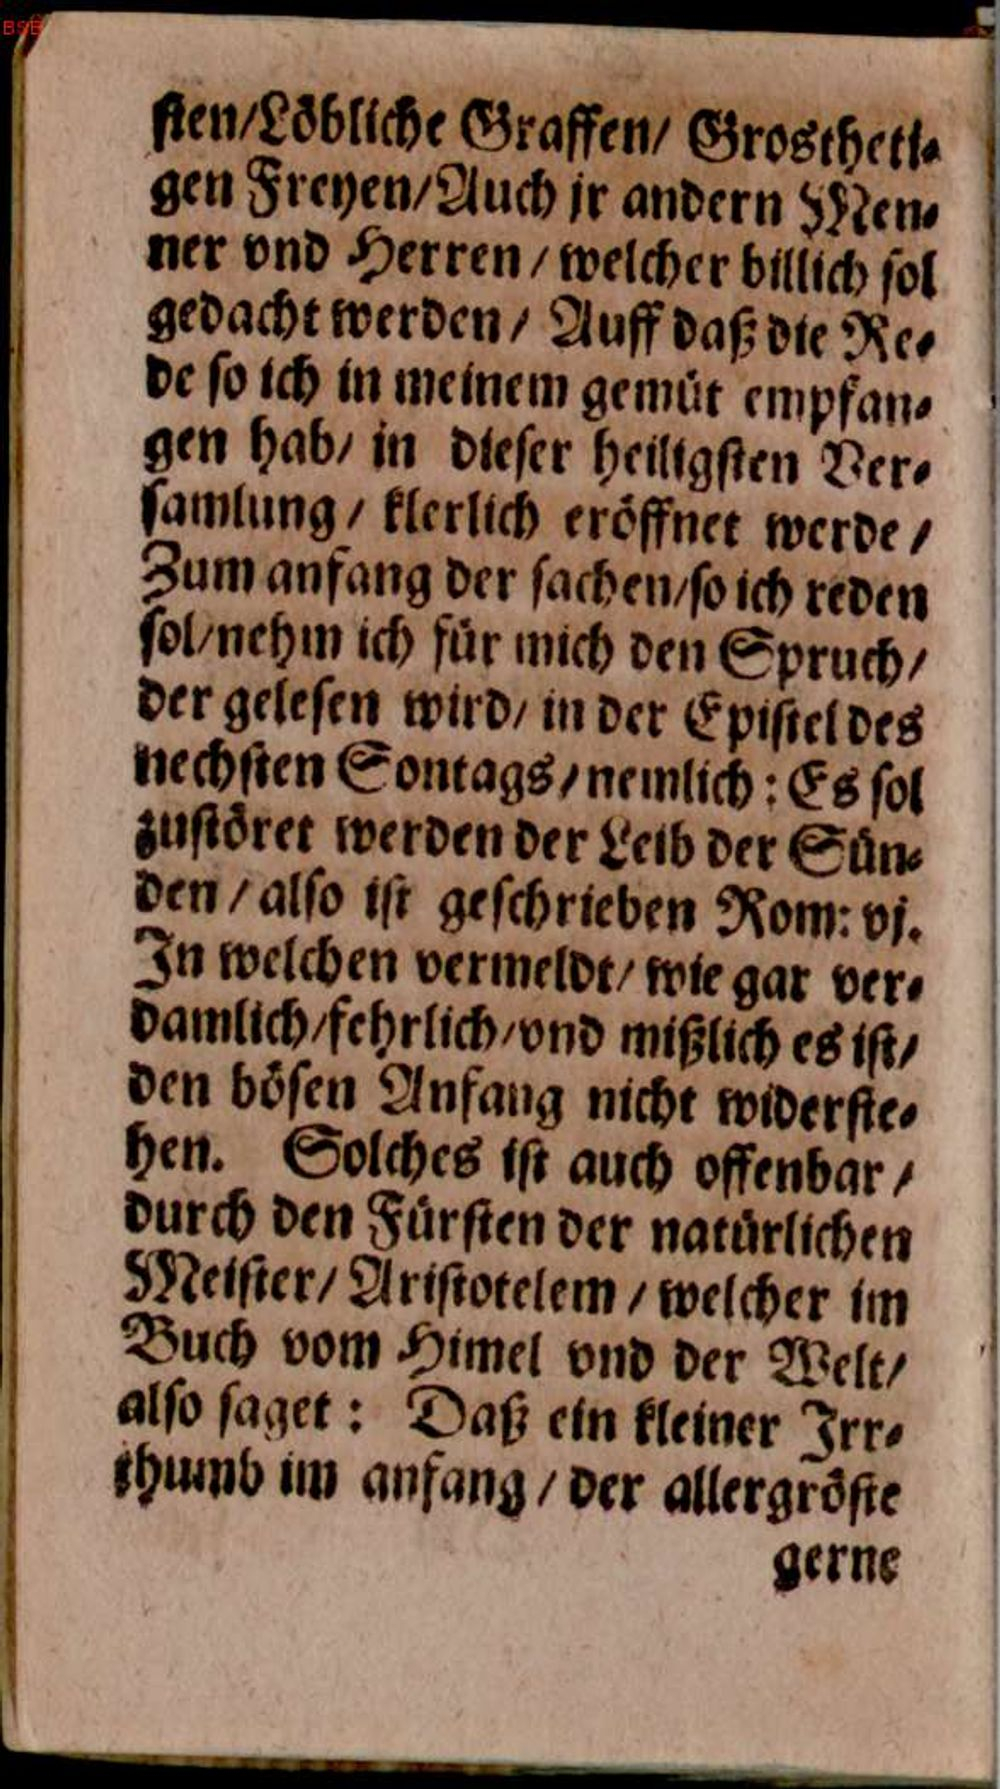 BSB
sten/Löbliche Graffen/ Grostheti-
gen Freyen/Auch jr andern Men-
ner vnd Herren / welcher billich sol
gedacht werden / Auff daß die Re-
de so ich in meinem gemüt empfan-
gen hab/ in dieser heiligsten Ver-
samlung / klerlich eröffnet werde /
Zum anfang der sachen/so ich reden
sol/nehm ich für mich den Spruch/
der gelesen wird/ in der Epistel des
nechsten Sontags / nemlich: Es sol
zustöret werden der Leib der Sün-
den / also ist geschrieben Rom: vj.
In welchen vermeldt/ wie gar ver-
damlich/fehrlich/vnd mißlich es ist/
den bösen Anfang nicht widerste-
hen. Solches ist auch offenbar /
durch den Fürsten der natürlichen
Meister/ Aristotelem / welcher im
Buch vom Himel vnd der Welt/
also saget: Daß ein kleiner Irr-
thumb im anfang / der allergröste
gerne